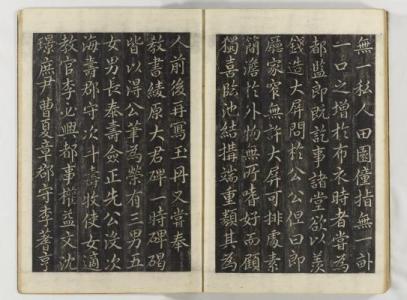 無一私人田園僮指無一卝
一口之增於布衣時者嘗為
都監郎既訖事諸堂欲以羡
錢造大屏問於公公但曰郎
廳家窄無許大屏可排處素
簡澹於外物無所嗜好而顧
獨喜臨池結搆端重類其為
人前後再寫玉丹又嘗奉
教書綾原大君碑一時碑碣
皆以得公筆為榮有三男五
女男長泰壽僉正先公沒次
海壽郡守次斗壽收使女適
教官李必興都事權益文沈
璟庶尹曹夏章郡守李蓍亨